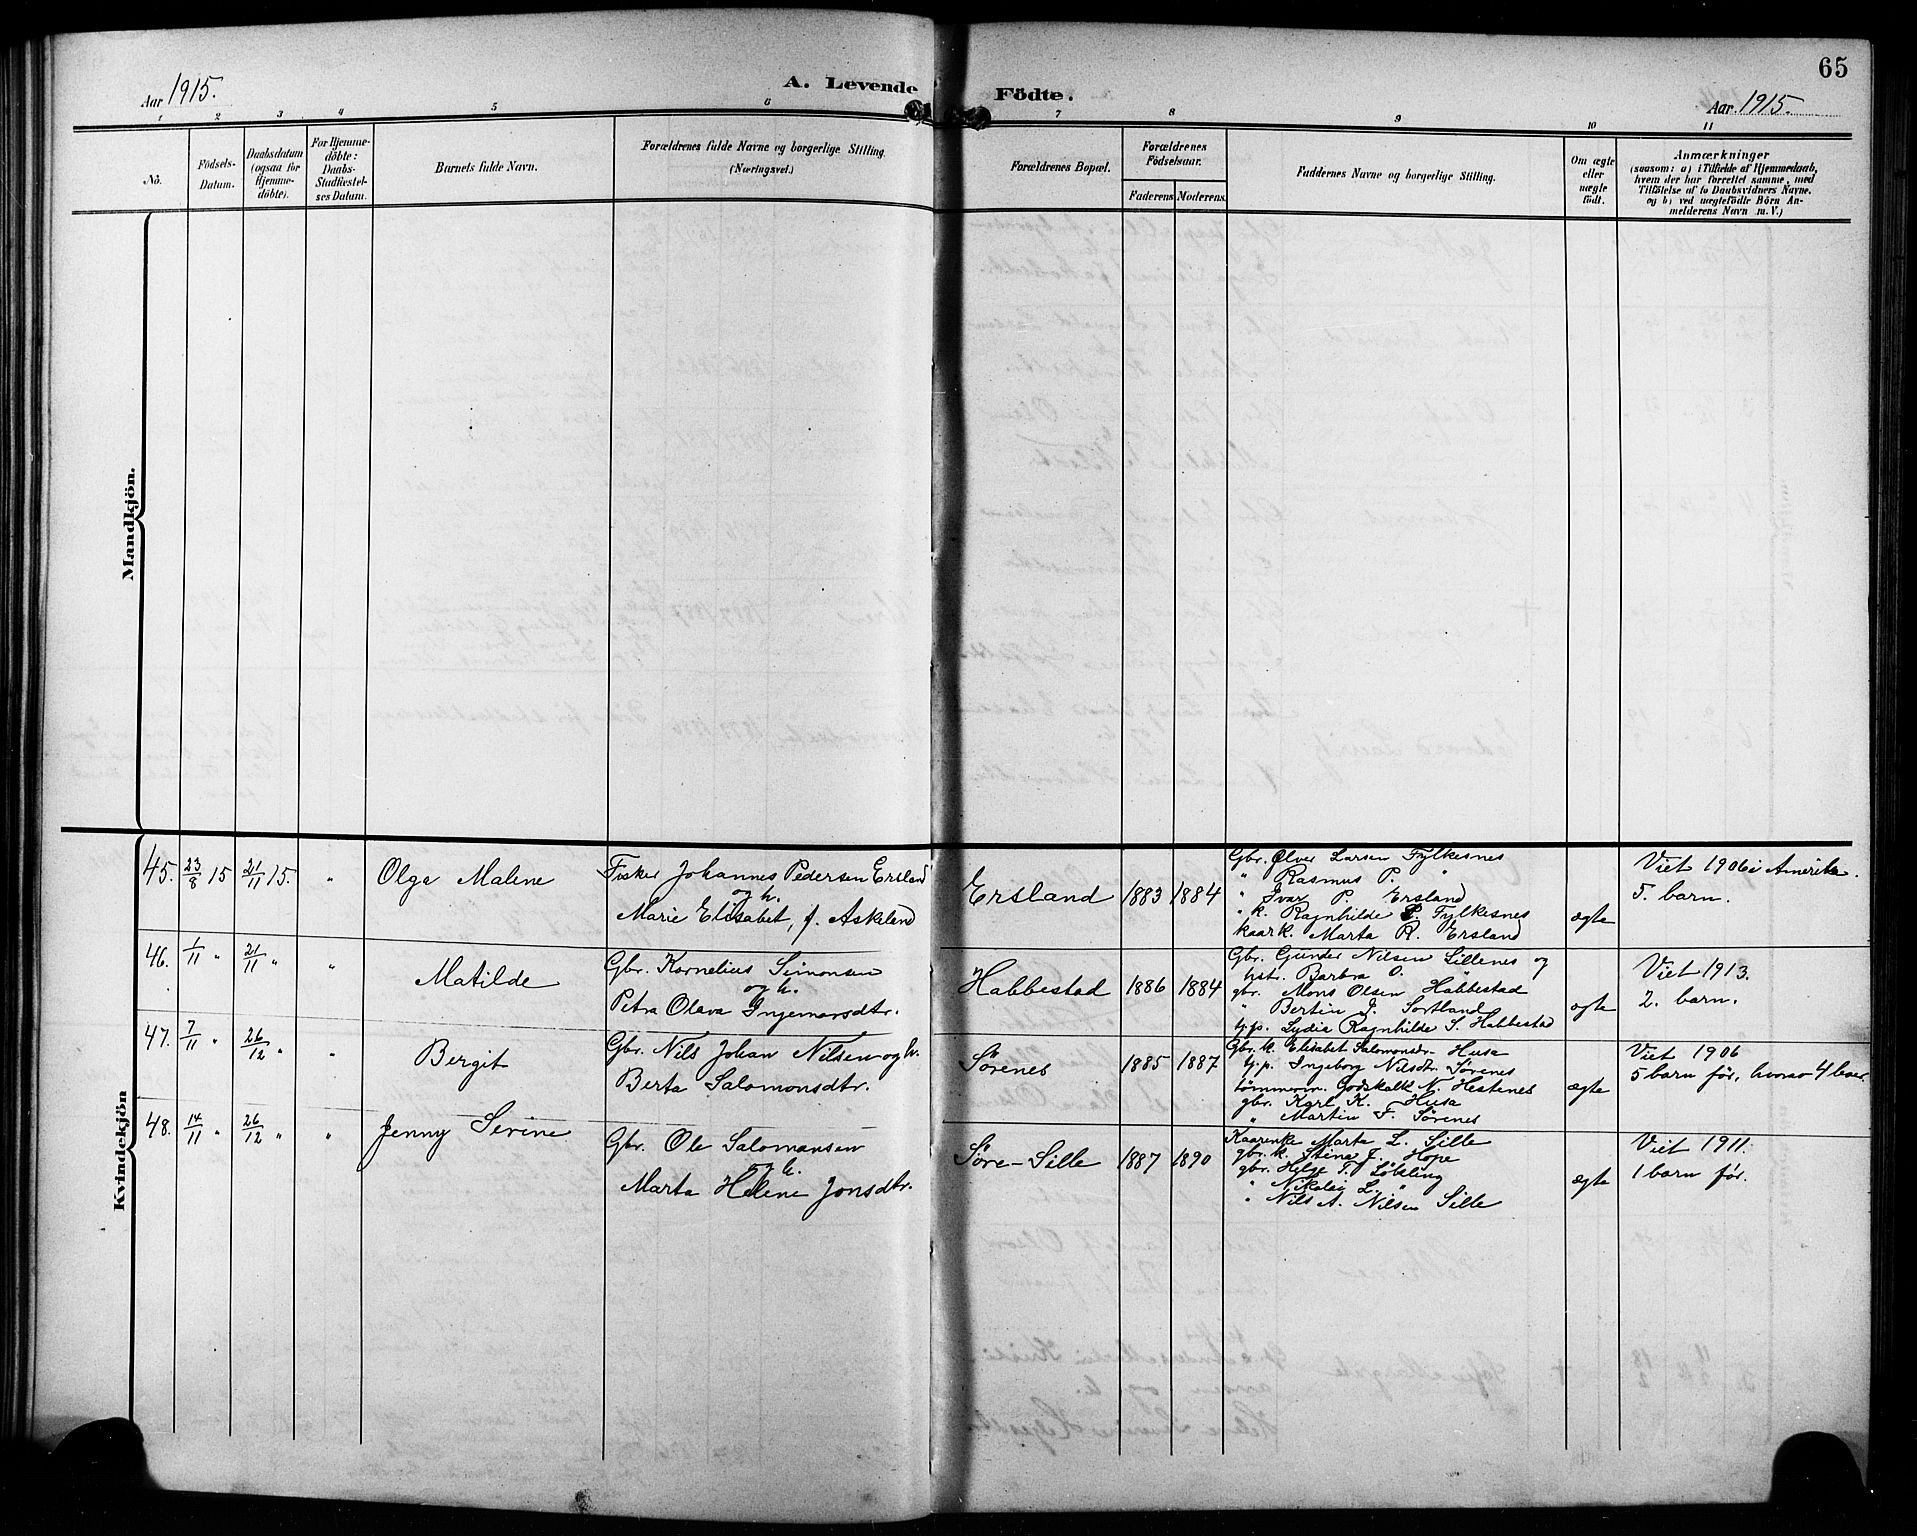 65
Aar 1915.
A. Levende Födte.
Aar 1915.
1 2 3 4 5 6 7 8 9 10 11
No.
Födsels-
Datum.
Daabsdatum
(ogsaa for
Hjemme-
döbte).
For Hjemme-
döbte:
Daabs-
Stadfæstel-
ses Datum.
Barnets fulde Navn.
Forældrenes fulde Navne og borgerlige Stilling
(Næringsvei.)
Forældrenes Bopæl.
Forældrenes
Födselsaar.
Faderens Moderens.
Faddernes Navne og borgerlige Stilling.
Om ægte
eller
uægte
födt.
Anmærkninger
(saasom: a) i Tilfælde af Hjemmedaab,
hvem der har forrettet samme, med
Tilföielse af to Daabsvidners Navne.
og b) ved uægtefödte Börn An-
melderens Navn m. V.)
Mandkjön.
Kvindekjön
45. 23/8 15 21/11 15. " Olga Malene
Fisker Johannes Pedersen Ersland
og h.
Marie Elisabet, f. Askland
Ersland 1883 1884
Gbr. Ølver Larsen Fylkesnes
" Rasmus P. "
" Ivar P. Ersland
" k. Ragnhilde P. Fylkesnes
kaark. Marta R. Ersland
ægte
Viet 1906 i Amerika.
5. barn.
46. 1/11 " 21/11 " " Matilde
Gbr. Kornelius Simonsen
og h.
Petra Olava Ingemarsdtr.
Habbestad 1886 1884
Gbr. Gunder Nilsen Lillenes og
hst. Barbra O.
gbr. Mons Olsen Habbestad
" Bertin J. Sortland
tj.p. Lydia Ragnhilde S. Habbestad
ægte
Viet 1913.
2. barn.
47. 7/11 " 26/12 " " Bergit
Gbr. Nils Johan Nilsen og h.
Berta Salomonsdtr.
Sörenes 1885 1887
Gbr. k. Elisabet Salomonsdr. Husa
tj.p. Ingeborg Nilsdtr. Sörenes
tömmerm. Godskalk N. Hestenes
gbr. Karl K. Husa
" Martin F. Sörenes
ægte
Viet 1906
5 barn før, hvorav 4 lever
48. 14/11 " 26/12 " " Jenny Serine
Gbr. Ole Salomansen
og h.
Marta Helene Jonsdtr.
Söre-Lille 1887 1890
Kaarenke Marta L. Lille
gbr. k. Stina J. Hope
gbr. Helge T. Löbling
" Nikolai L. "
" Nils A. Nilsen Lille
ægte
Viet 1911.
1 barn før.